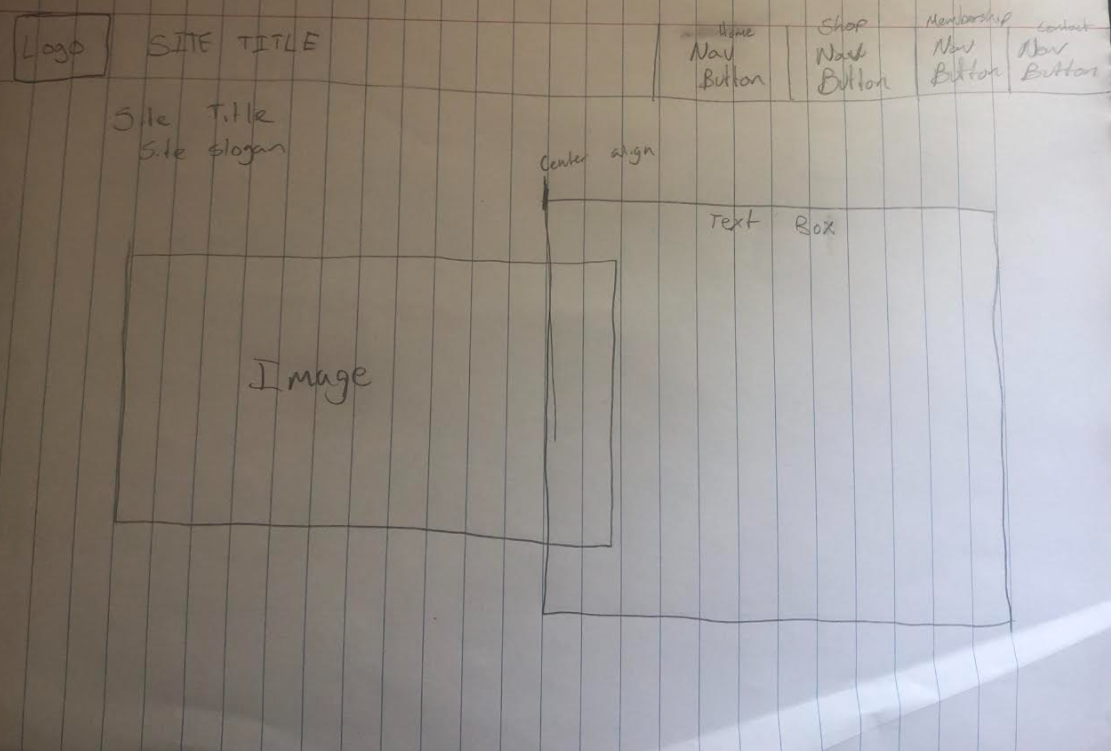 Logo
SITE TITLE
Home
Nav
Button
Shop
Nav
Button
Membership
Nav
Button
Contact
Nav
Button
Site Title
Site slogan
Center align
Text Box
Image